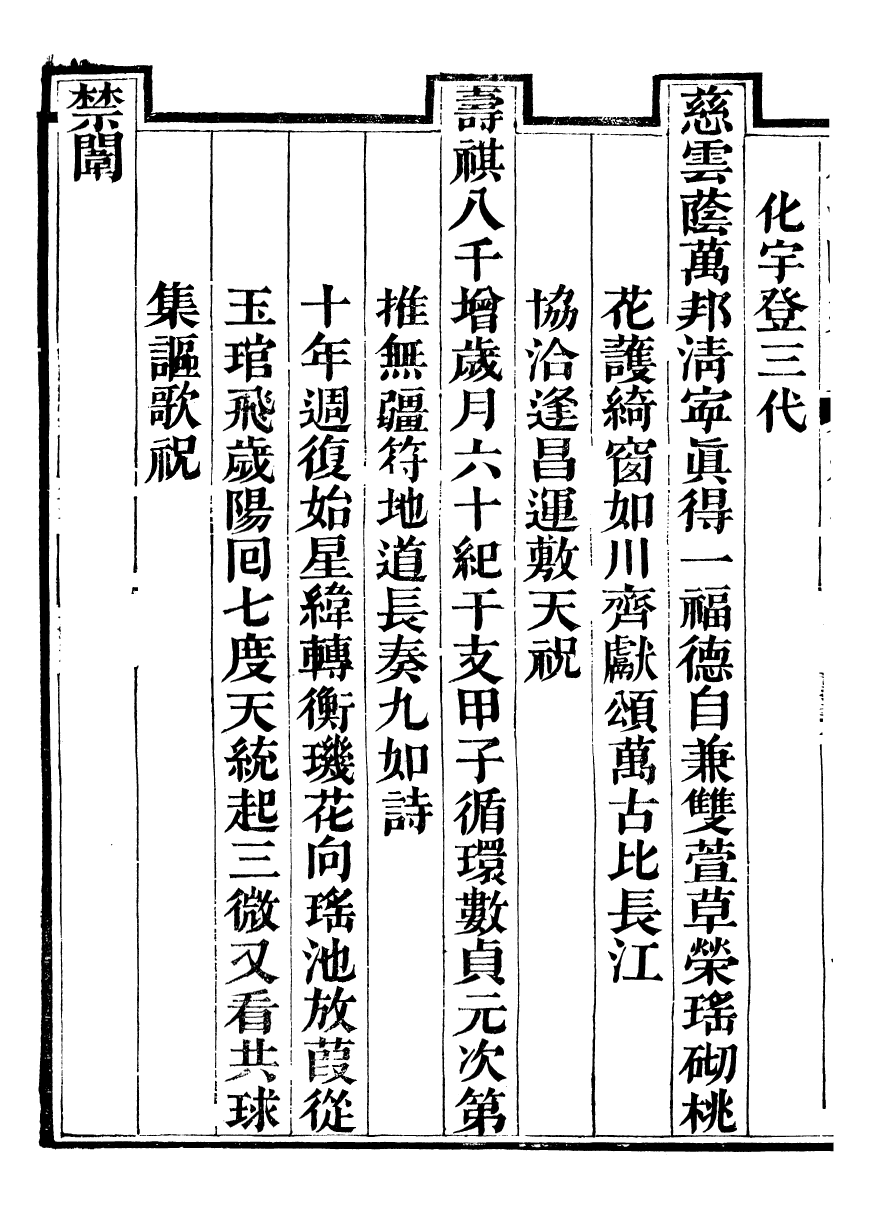 化宇登三代
慈雲蔭萬邦淸寍眞得一福德自兼雙萱草榮瑤砌桃
花護綺窗如川齊獻頌萬古比長江
協洽逢昌運敷天祝
壽祺八千增歲月六十紀干支甲子循環數貞元次第
推無疆符地道長奏九如詩
十年週復始星緯轉衡璣花向瑤池放葭從
玉琯飛歲陽回七度天統起三微又看共球
集謳歌祝
禁闈